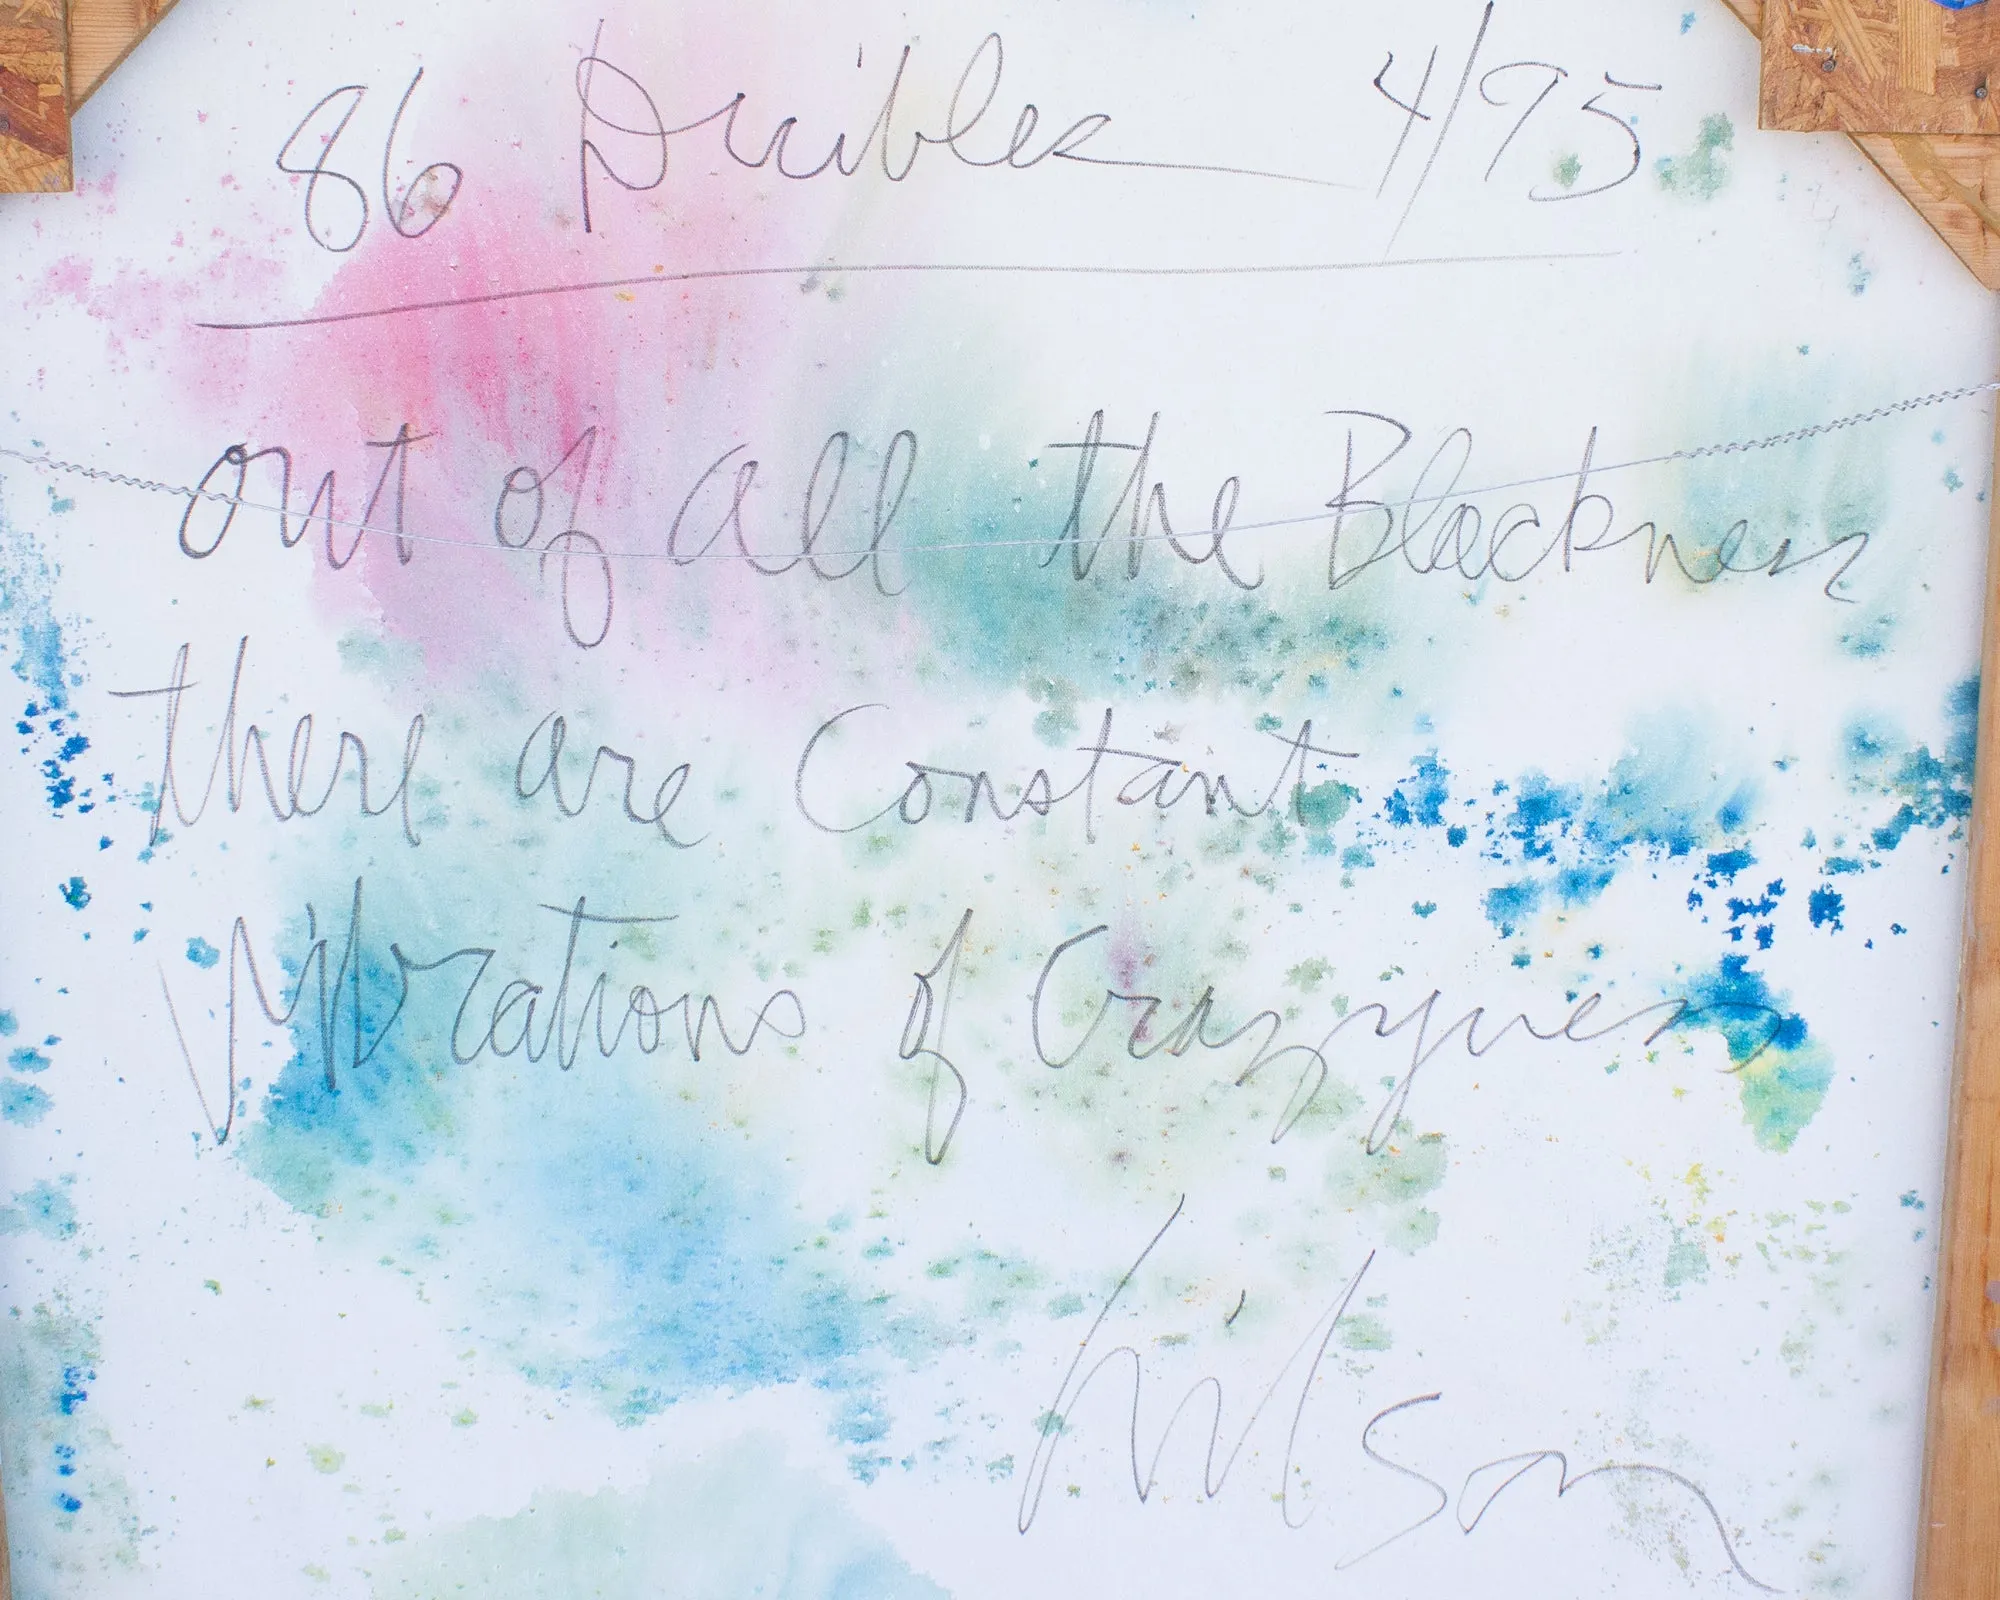 86 Dribles 4/95
out of all the Blackness
there are Constant
Vibrations of Crazyness
Wilson